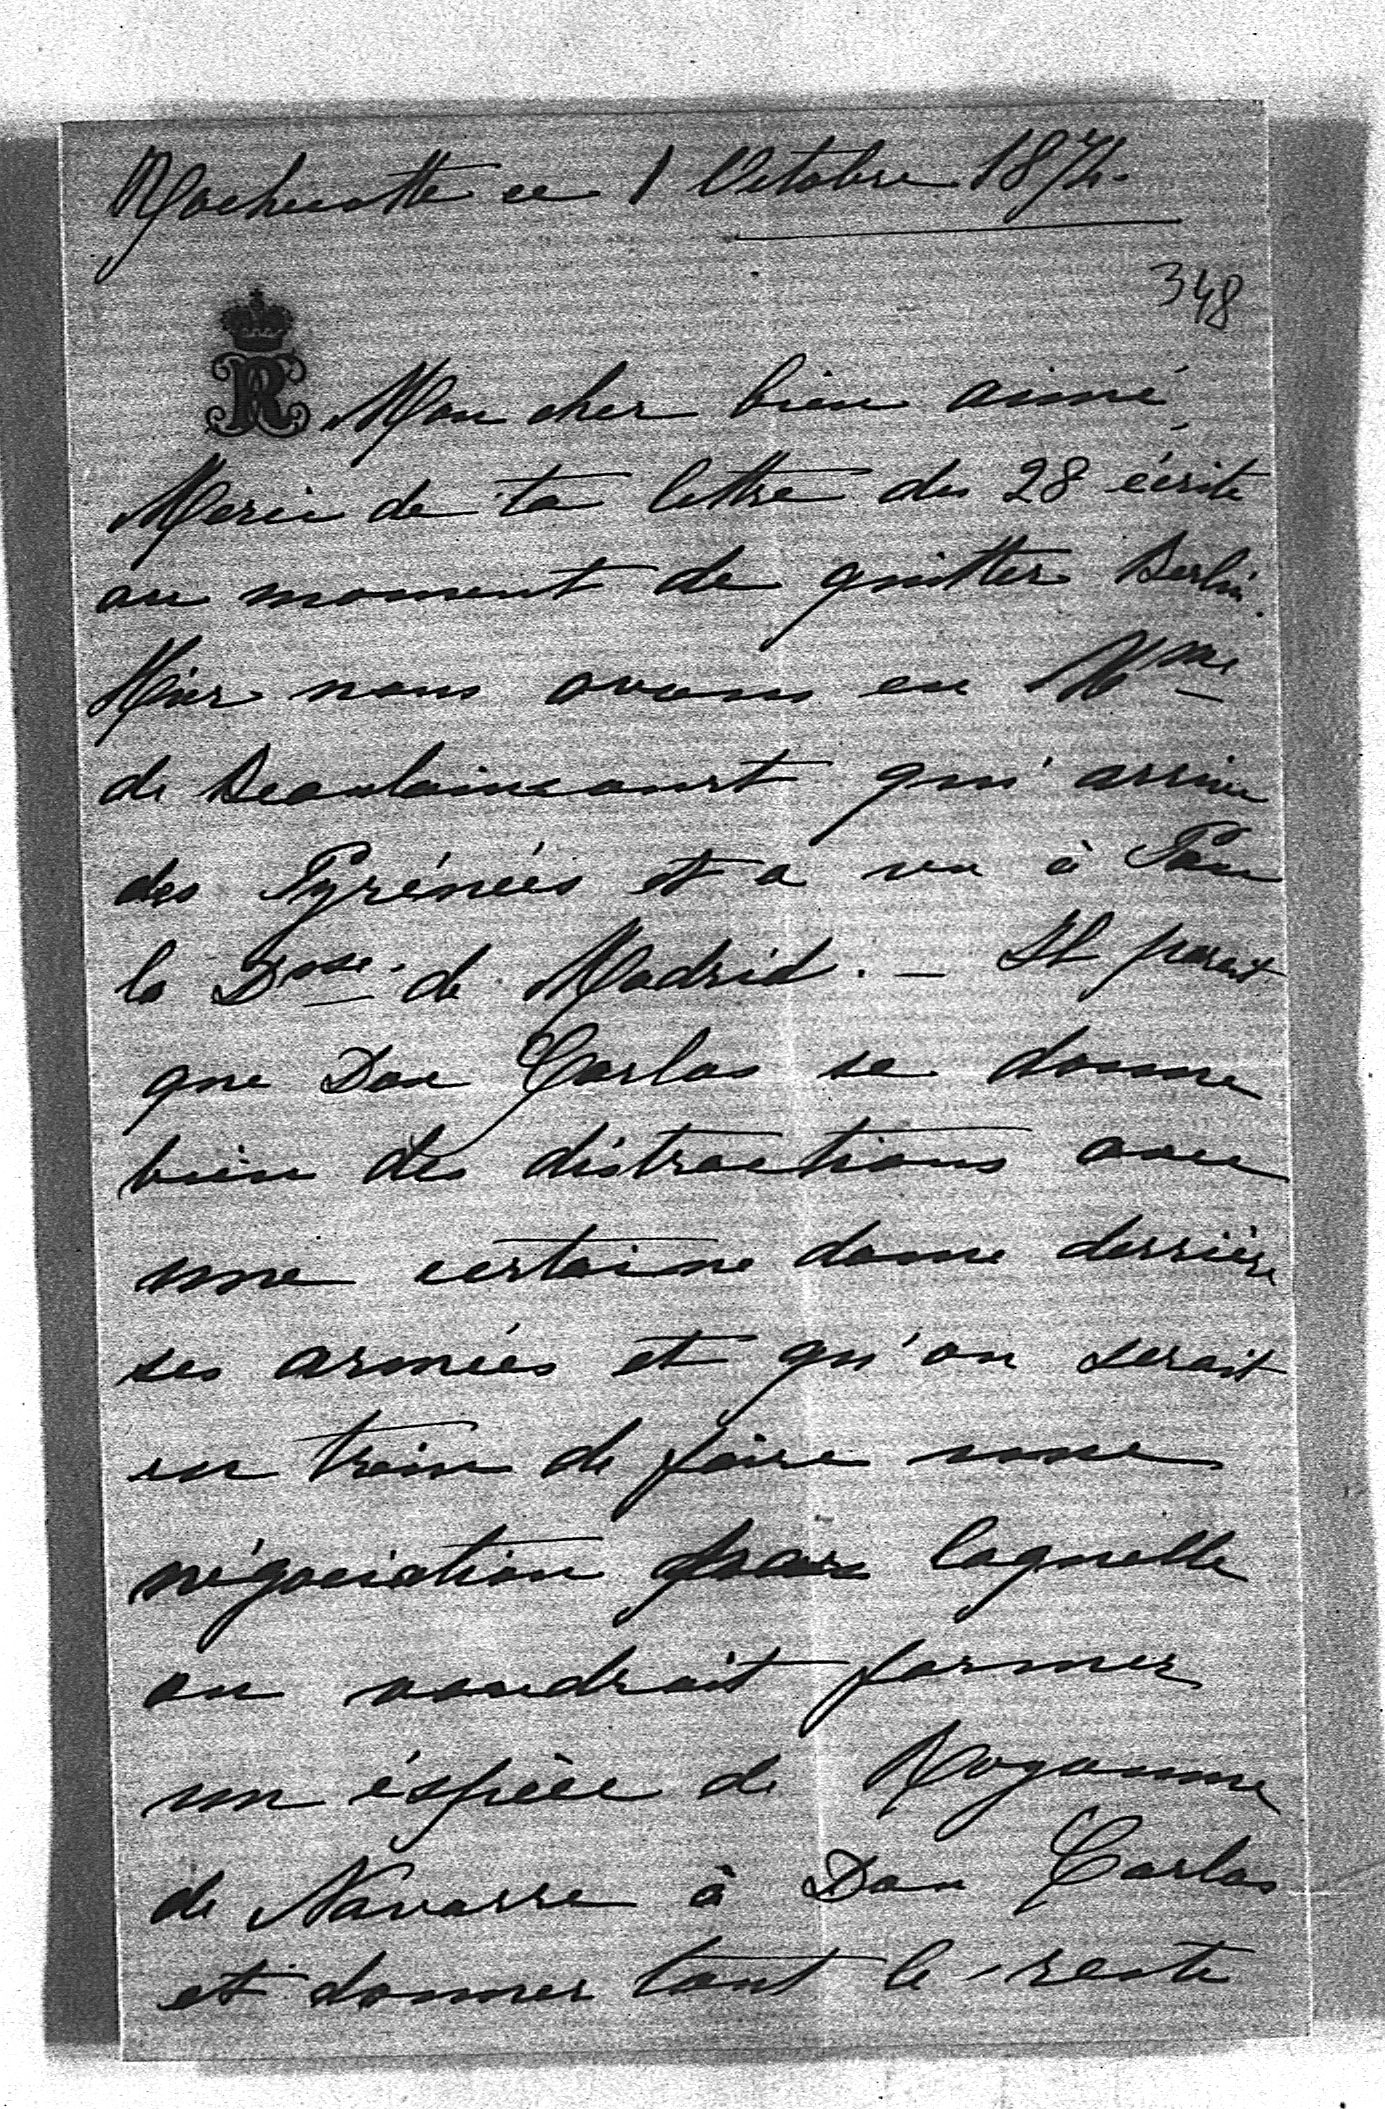 Rochecotte ce 1 Octobre 1874.
348
Mon cher bien aimé,
Merci de ta lettre du 28 écrite
au moment de quitter Berlin.
Hier nous avons eu Mme
de Beaulaincourt qui arrive
des Pyrénées et a vu à Pau
la Dsse de Madrid. — Il parait
que Don Carlos se donne
bien des distractions avec
une certaine dame derrière
ses armées et qu'on serait
en train de faire une
négociation par laquelle
on voudrait former
un éspèce de Royaume
de Navarre à Don Carlos
et donner tout le reste